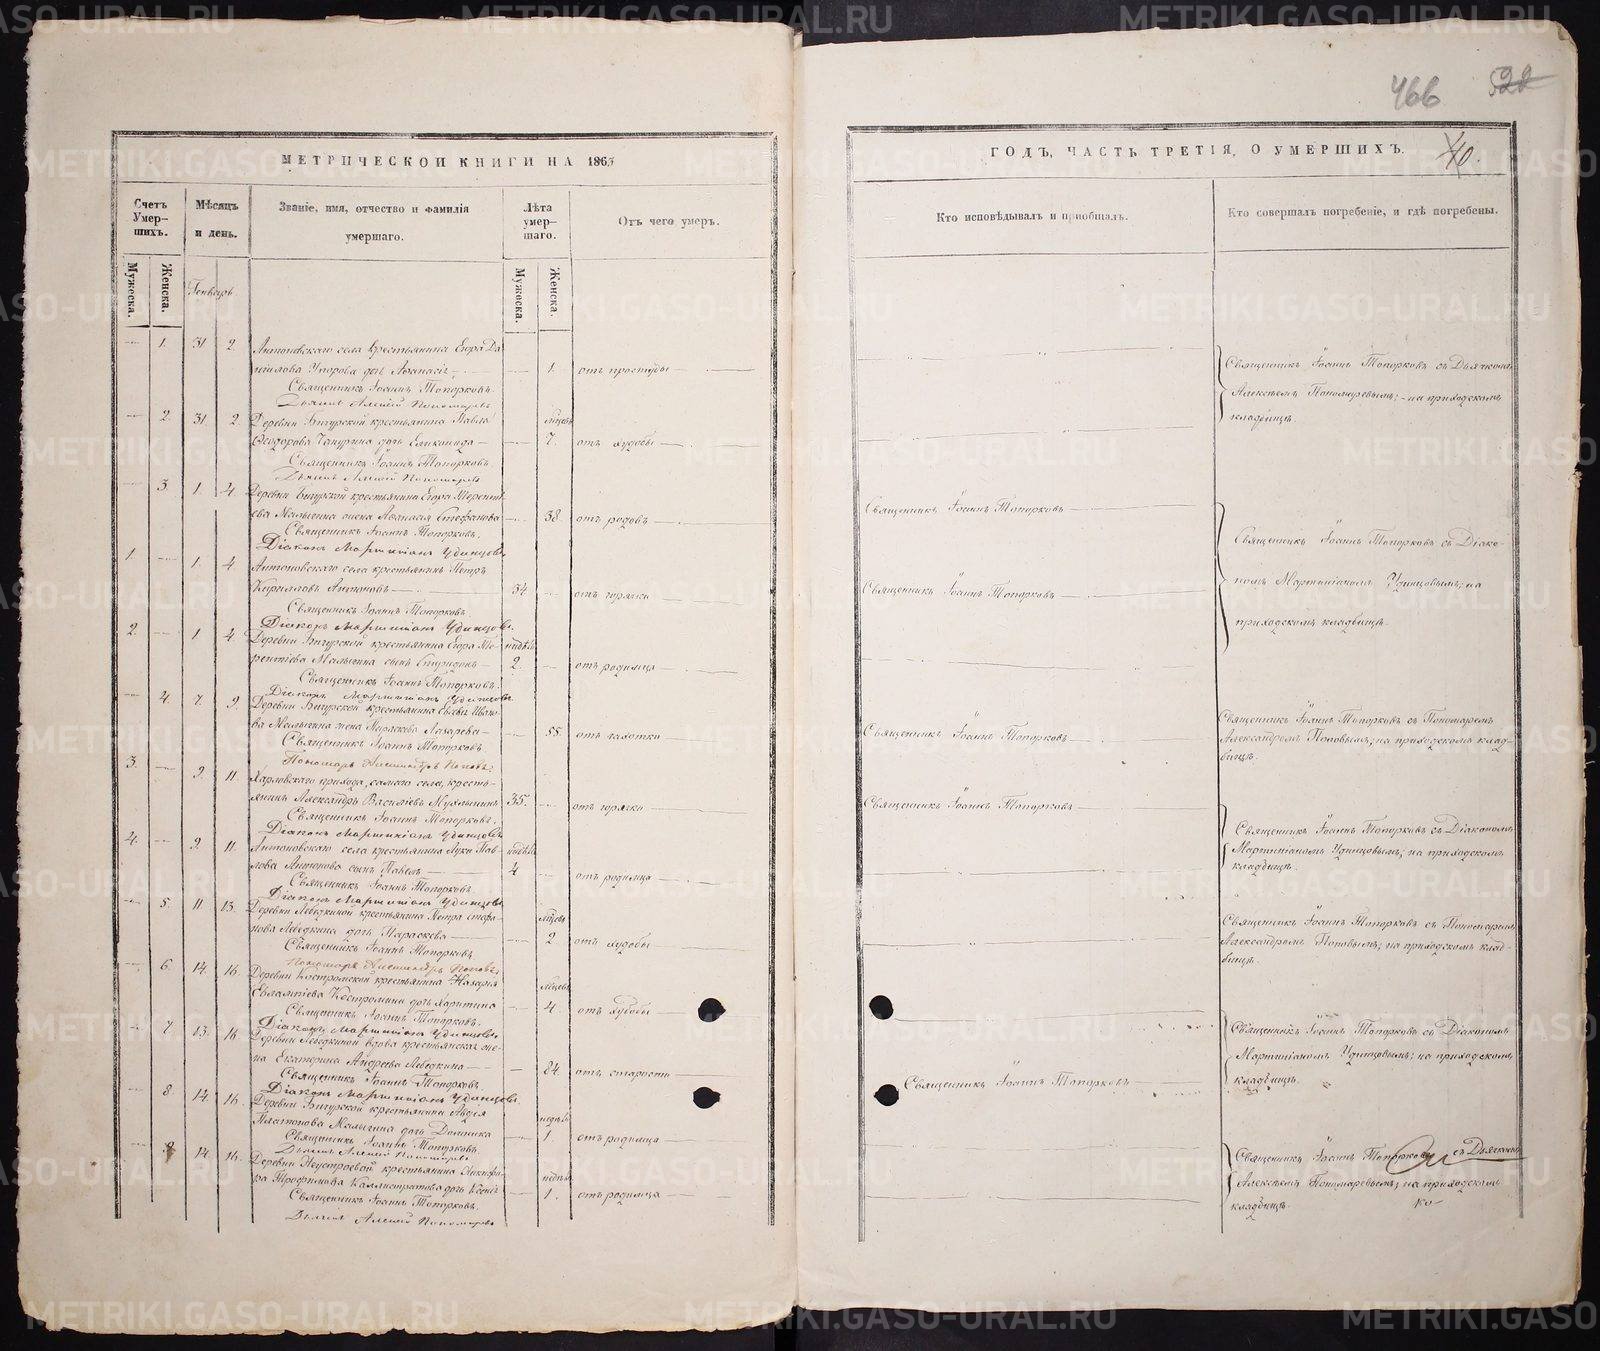 466 522
МЕТРИЧЕСКОЙ КНИГИ НА 1865
Счетъ Умер-шихъ.
Мѣсяцъ и день.
Званіе, имя, отчество и фамилія умершаго.
Лѣта умер-шаго.
Отъ чего умеръ.
Мужеска. Женска. Генварь Мужеска. Женска.
1. 31 2. Антоновскаго села крестьянина Егора Да-
ніилова Упорова дочь Аѳанасія 1. отъ простуды
Священникъ Іоаннъ Топорковъ.
Дьячекъ Алексій Пономаревъ
2. 31 2. Деревни Бигурской крестьянина Павла мѣсяц.
Ѳеодорова дочь 7. отъ худобы
Священникъ Іоаннъ Топорковъ
Дьячекъ Алексій Пономаревъ
3. 1. 4. Деревни Бигурской крестьянина Егора Теренті-
ева Малыгина жена Аѳанасія Стефанова 38. отъ родовъ
Священникъ Іоаннъ Топорковъ.
Діаконъ Мартиніанъ Удинцовъ.
1. 1. 4 Антоновскаго села крестьянинъ Петръ
Кириловъ Антоновъ 34 отъ горячки
Священникъ Іоаннъ Топорковъ
Діаконъ Мартиніанъ Удинцовъ.
2. 1 4 Деревни Бигурской крестьянина Егора Те- недѣль
рентіева Малыгина сынъ Спиридонъ 2. отъ родимца
Священникъ Іоаннъ Топорковъ.
Діаконъ Мартиніанъ Удинцовъ.
4. 7. 9. Деревни Бигурской крестьянина Ивано-
ва Малыгина жена Лазарева 55. отъ чахотки
Священникъ Іоаннъ Топорковъ
Пономарь Александръ Поповъ.
3. 9. 11. Харловскаго прихода, самаго села, кресть-
янинъ Александръ Василіевъ 35. отъ горячки
Священникъ Іоаннъ Топорковъ.
Діаконъ Мартиніанъ Удинцовъ
4. 9. 11. Антоновскаго села крестьянина Луки Пав- недѣль
лова Антонова сынъ Павелъ 4 отъ родимца
Священникъ Іоаннъ Топорковъ.
Діаконъ Мартиніанъ Удинцовъ
5. 11 13. Деревни Лебедкиной крестьянина Петра Стефа- мѣсяц.
нова Лебедкина дочь Параскева 2. отъ худобы
Священникъ Іоаннъ Топорковъ
Пономарь Александръ Поповъ.
6. 14. 16. Деревни Костромской крестьянина Назарія
Евлампіева Костромина дочь Харитина 4. отъ худобы
Священникъ Іоаннъ Топорковъ.
Діаконъ Мартиніанъ Удинцовъ.
7 13. 16 Деревни Лебедкиной вдова крестьянская же-
на Екатерина Андреева Лебедкина 84. отъ старости
Священникъ Іоаннъ Топорковъ
Діаконъ Мартиніанъ Удинцовъ.
8. 14. 16. Деревни Бигурской крестьянина Авдія
Платонова Малыгина дочь Домника 1. отъ родимца
Священникъ Іоаннъ Топорковъ.
Дьячекъ Алексій Пономаревъ
9. 14. 16. Деревни крестьянина Никифо-
ра Трофимова Каллистратова дочь Ксенія 1. отъ родимца
Священникъ Іоаннъ Топорковъ.
Дьячекъ Алексій Пономаревъ
ГОДЪ, ЧАСТЬ ТРЕТІЯ, О УМЕРШИХЪ. 40.
Кто исповѣдывалъ и пріобщалъ.
Кто совершалъ погребеніе, и гдѣ погребены.
Священникъ Іоаннъ Топорковъ съ Дьячкомъ
Алексѣемъ Пономаревымъ; на приходскомъ
кладбищѣ.
Священникъ Іоаннъ Топорковъ
Священникъ Іоаннъ Топорковъ съ Діако-
номъ Мартиніаномъ Удинцовымъ; на
приходскомъ кладбищѣ.
Священникъ Іоаннъ Топорковъ
Священникъ Іоаннъ Топорковъ
Священникъ Іоаннъ Топорковъ съ Пономаремъ
Александромъ Поповымъ; на приходскомъ клад-
бищѣ.
Священникъ Іоаннъ Топорковъ
Священникъ Іоаннъ Топорковъ съ Діакономъ
Мартиніаномъ Удинцовымъ; на приходскомъ
кладбищѣ.
Священникъ Іоаннъ Топорковъ съ Пономаремъ
Александромъ Поповымъ; на приходскомъ клад-
бищѣ.
Священникъ Іоаннъ Топорковъ съ Діакономъ
Мартиніаномъ Удинцовымъ; на приходскомъ
кладбищѣ.
Священникъ Іоаннъ Топорковъ
Священникъ Іоаннъ Топорковъ съ Дьячкомъ
Алексѣемъ Пономаревымъ; на приходскомъ
кладбищѣ. ко
METRIKI.GASO-URAL.RU